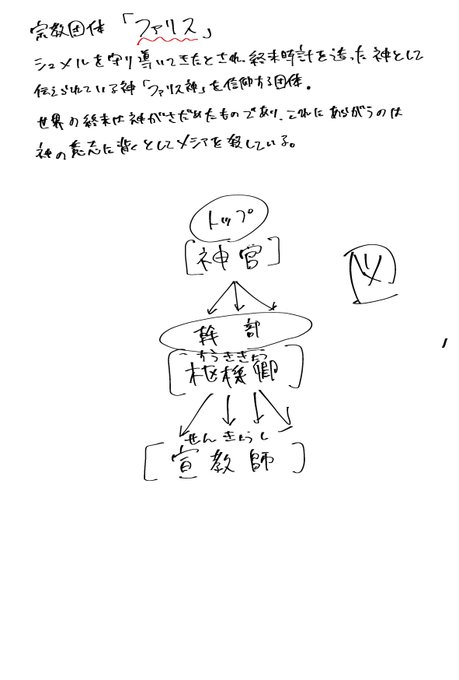 宗教団体 「ファリス」
シュメルを守り導いてきたとされ、終末時計を造った神として
伝えられている神「ファリス神」を信仰する団体。
世界の終末は神がさだめたものであり、これにあらがうのは
神の意志に背くとしてメシアを殺している。
トップ
[神官]
幹部
すうききょう
[枢機卿]
せんきょうし
[宣教師]